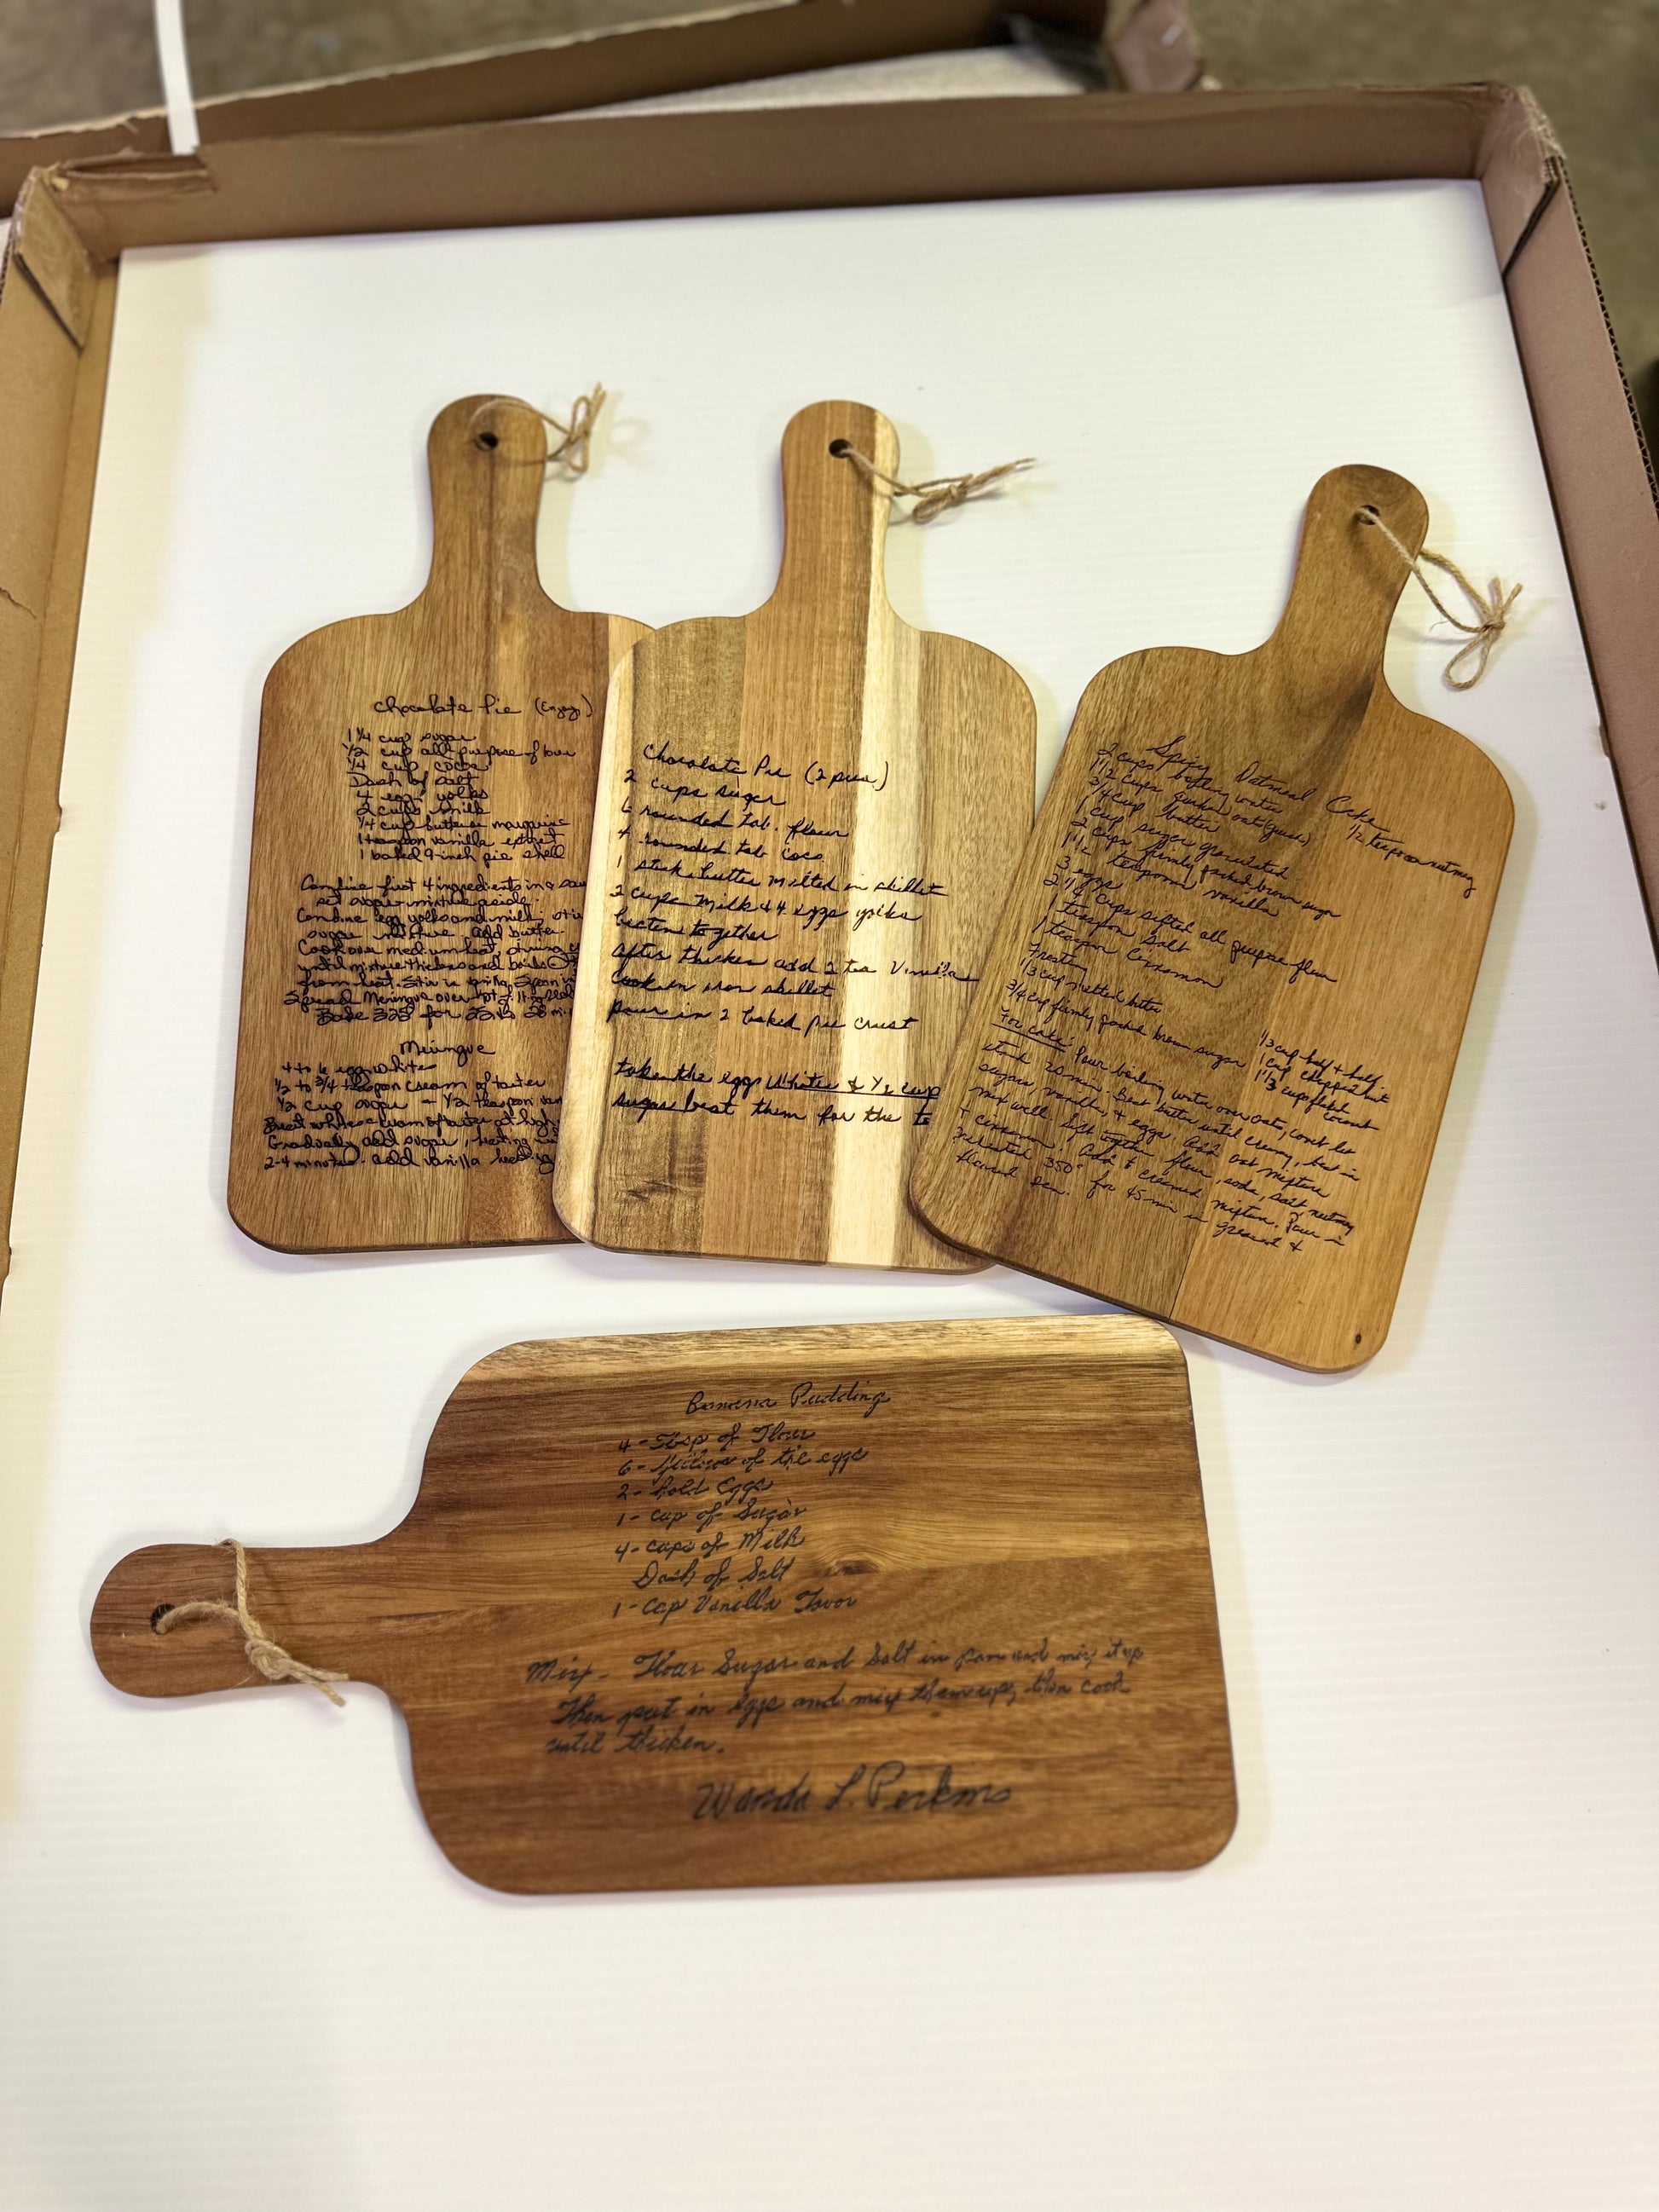 Chocolate Pie (Enjoy)
1 1/4 cup sugar
1/2 cup all-purpose flour
1/4 cup cocoa
Dash of salt
4 egg yolks
2 cups milk
1/4 cup butter or margarine
1 teaspoon vanilla extract
1 baked 9-inch pie shell
Combine first 4 ingredients in a
set sugar mixture aside.
Combine egg yolks and milk;
sugar mixture. add butter.
Cook over medium heat, stirring
until mixture thickens and boils.
from heat. Stir in
Spread Meringue over hot filling
Bake 325° for 25 to 28
Meringue
4 to 6 egg whites
1/2 to 3/4 teaspoon cream of tarter
1/2 cup sugar - 1/2 teaspoon
Beat whites & cream of tarter at high
Gradually add sugar, beating
2-4 minutes. add vanilla
Chocolate Pie (2 pies)
2 cups sugar
6 rounded tab. flour
4 rounded tab coco
1 stick butter melted in skillet
3 cups milk & 4 eggs yolks
beaten together
after thicken add 2 tea Vanilla
Cook in iron skillet
pour in 2 baked pie crust
take the egg whites & 1/2 cup
sugar beat them for the
Spicy Oatmeal Cake
2 cups boiling water 1/2 teaspoon nutmeg
1 1/2 cups quaker oats (quick)
3/4 cup butter
1 cup sugar granulated
2 cups firmly packed brown sugar
1 1/2 teaspoons vanilla
3 eggs
2 1/4 cups sifted all purpose flour
1 teaspoon salt
1 teaspoon Cinnamon
Frosting
1/3 cup melted butter 1/3 cup half & half
3/4 cup firmly packed brown sugar 1 cup chopped nut
1 1/3 cups flaked coconut
For cake: Pour boiling water over oats, cover let
stand 20 min. Beat butter until creamy, beat in
sugars, vanilla, & eggs. Add oat mixture
mix well. Sift together flour, soda, salt nutmeg
& cinnamon. Add to creamed mixture. Pour in
350° for 45 min in greased &
floured pan.
Banana Pudding
4 - Tbsp of Flour
6 - Yellows of the eggs
2 - hold Eggs
1 - cup of Sugar
4 - cups of Milk
Dash of Salt
1 - Cap Vanilla Flavor
Mix - Flour Sugar and Salt in pan and mix it up
Then put in eggs and mix them up, then cook
until thicken.
Wanda L. Perkins